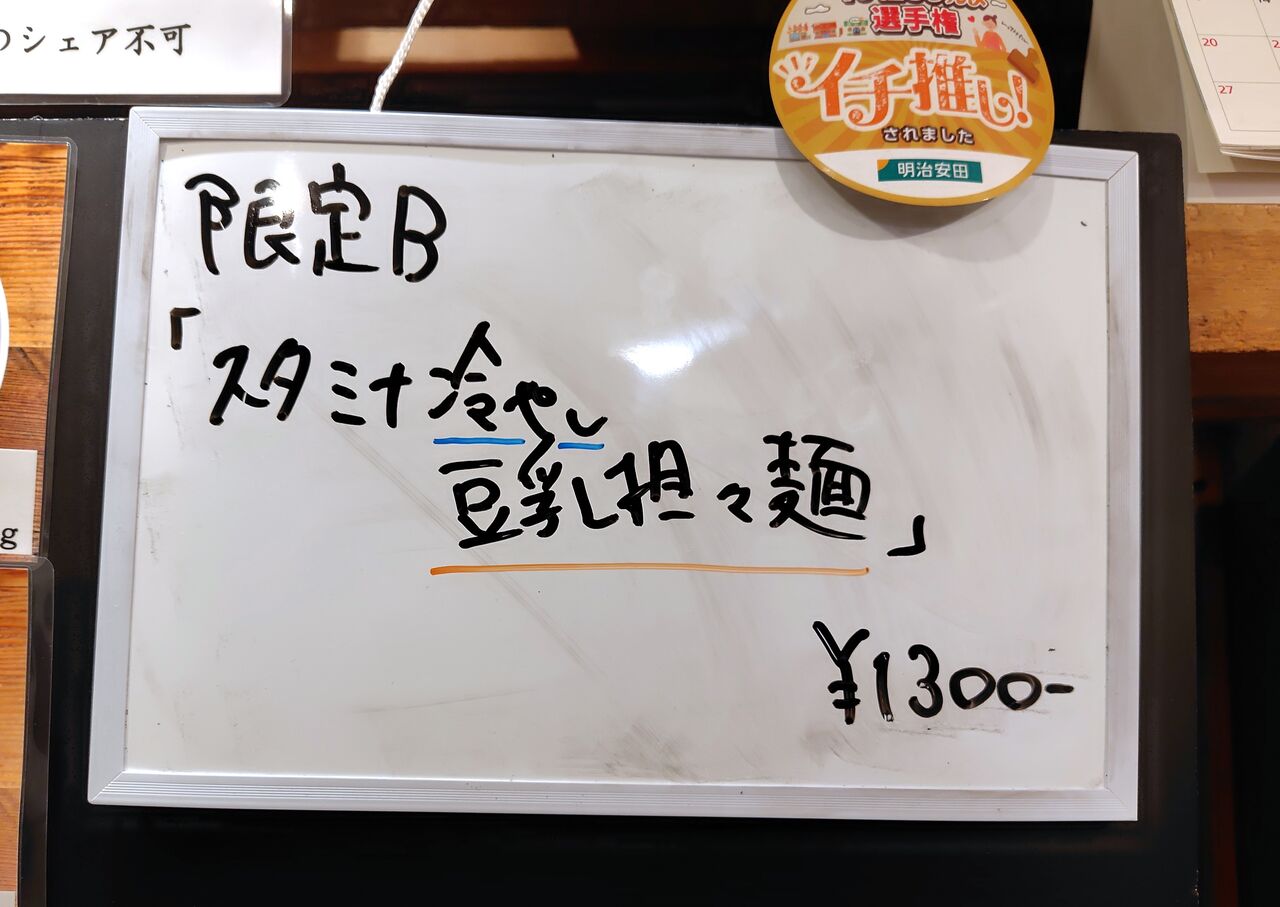 のシェア不可
選手権
イチ推し!
されました
明治安田
20
27
限定B
「スタミナ冷やし
豆乳担々麺」
¥1300-
g